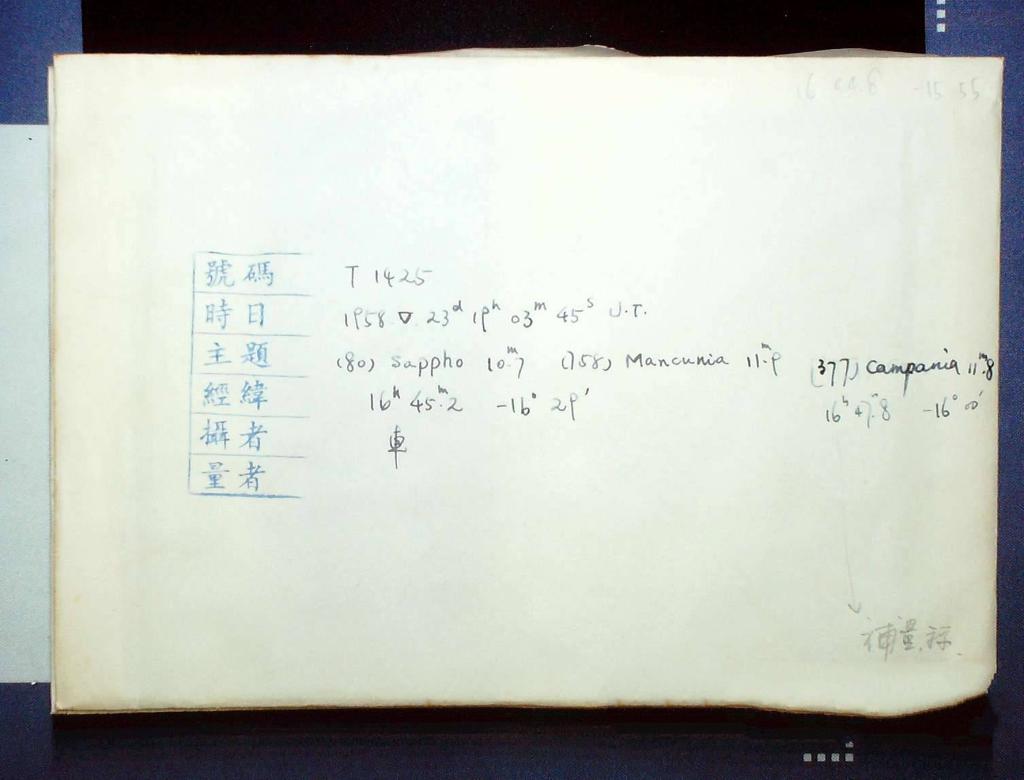 16 44.8 -15 55
號碼 T 1425
時日 1958 V 23ᵈ 19ʰ 03ᵐ 45ˢ U.T.
主題 (80) Sappho 10ᵐ.7 (758) Mancunia 11ᵐ.9 (377) Campania 11ᵐ.8
經緯 16ʰ 45ᵐ.2 -16° 29′ 16ʰ 47ᵐ.8 -16° 00′
攝者 車
量者
補量